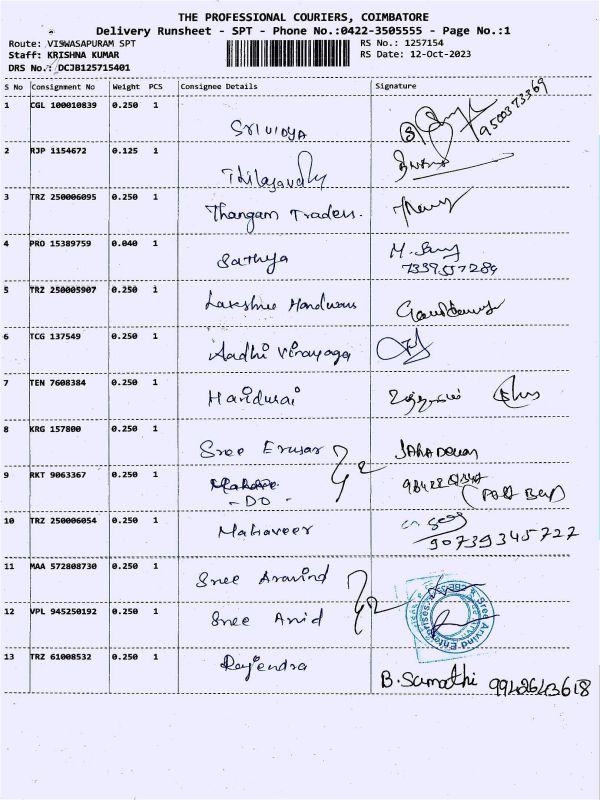 THE PROFESSIONAL COURIERS, COIMBATORE
Delivery Runsheet - SPT - Phone No.:0422-3505555 - Page No.:1
Route: VISWASAPURAM SPT RS No.: 1257154
Staff: KRISHNA KUMAR RS Date: 12-Oct-2023
DRS No.: DCJB125715401
S No Consignment No Weight PCS Consignee Details Signature
1 CGL 100010839 0.250 1 9500373369
SRIVIDYA
2 RJP 1154672 0.125 1
3 TRZ 250006095 0.250 1 Thangam Traders.
4 PRO 15389759 0.040 1 Sathya
5 TRZ 250005907 0.250 1 Lakshmi
6 TCG 137549 0.250 1 Aadhi Vinayaga
7 TEN 7608384 0.250 1 Haridurai
8 KRG 157800 0.250 1
Sree
9 RKT 9063367 0.250 1
- DO -
10 TRZ 250006054 0.250 1 Mahaveer
9073934 5727
11 MAA 572808730 0.250 1 Sree Aravind
12 VPL 945250192 0.250 1 Sree Sree Arvind Enterprises
13 TRZ 61008532 0.250 1 Rajendra
B. Sumathi 9942643618